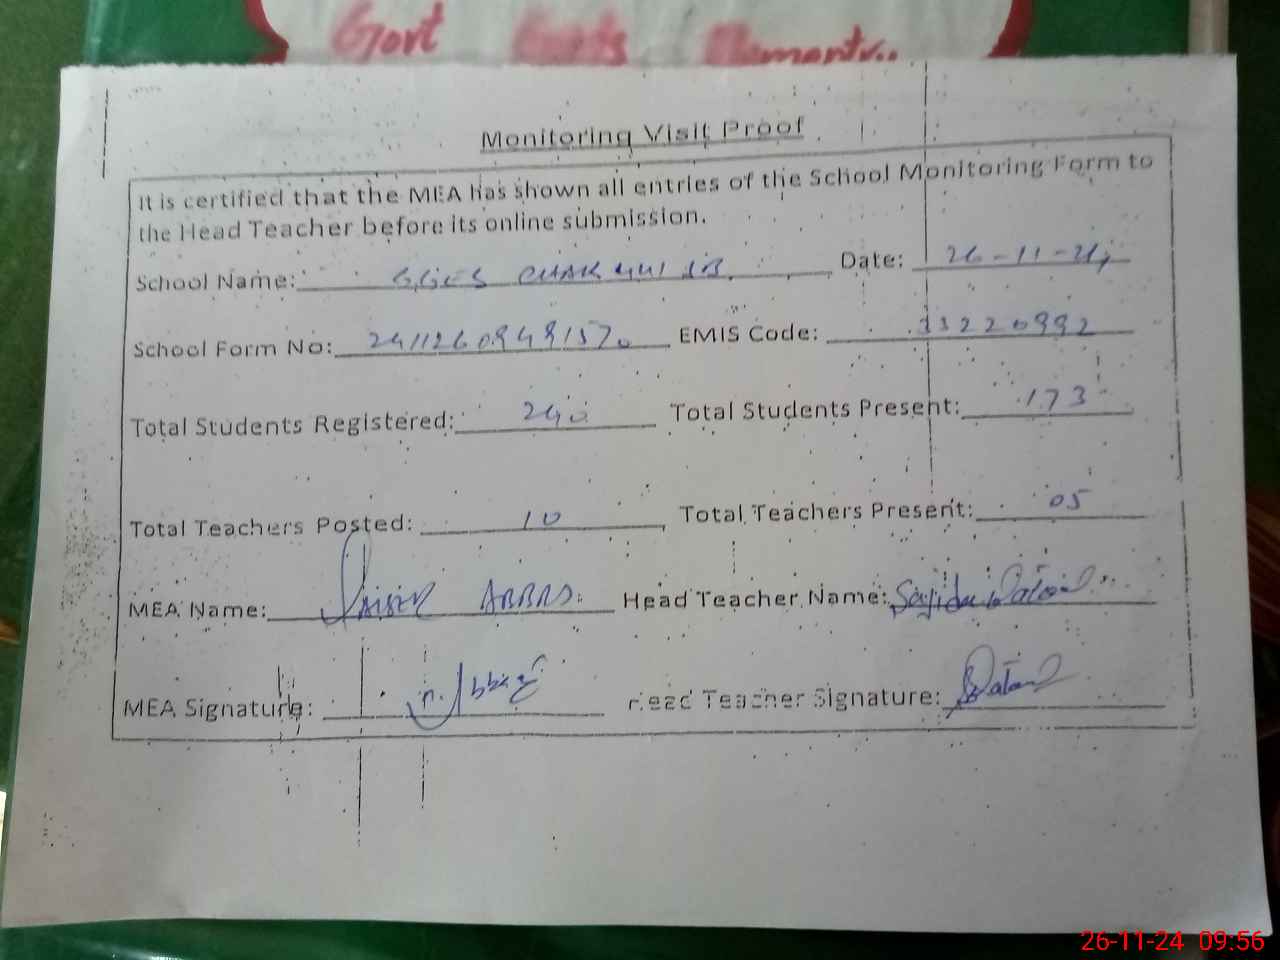 Govt Elementry..
Monitoring Visit Proof
It is certified that the MEA has shown all entries of the School Monitoring Form to
the Head Teacher before its online submission.
School Name: GGES CHAK 441 JB. Date: 26-11-24
School Form No: EMIS Code: 33220992
Total Students Registered: 240 Total Students Present: 173
Total Teachers Posted: 10 Total Teachers Present: 05
MEA Name: QAISER ABBAS. Head Teacher Name: Sajida
MEA Signature: Head Teacher Signature:
26-11-24 09:56